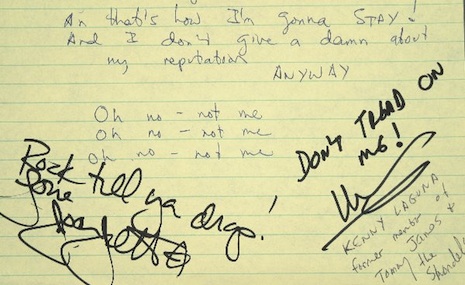 An that's how I'm gonna STAY!
And I don't give a damn about
my reputation
ANYWAY
Oh no - not me
Oh no - not me
Oh no - not me
DON'T TREAD ON
ME!
Rock till ya drop!
Love
Joan Jett
KENNY LAGUNA
former member of
Tommy James &
the Shondells